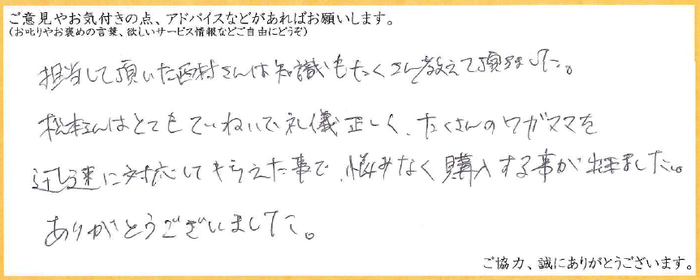 ご意見やお気付きの点、アドバイスなどがあればお願いします。
(お叱りやお褒めの言葉、欲しいサービス情報などご自由にどうぞ)
担当して頂いた西村さんは知識もたくさん教えて頂きました。
松本さんはとてもていねいで礼儀正しく、たくさんのワガママを
迅速に対応してもらえた事で、悩みなく購入する事が出来ました。
ありがとうございました。
ご協力、誠にありがとうございます。